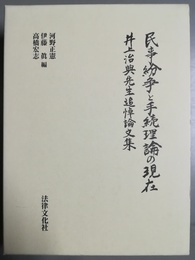 民事紛争と手続理論の現在
井上治典先生追悼論文集
河野正憲
伊藤 眞 編
高橋宏志
法律文化社